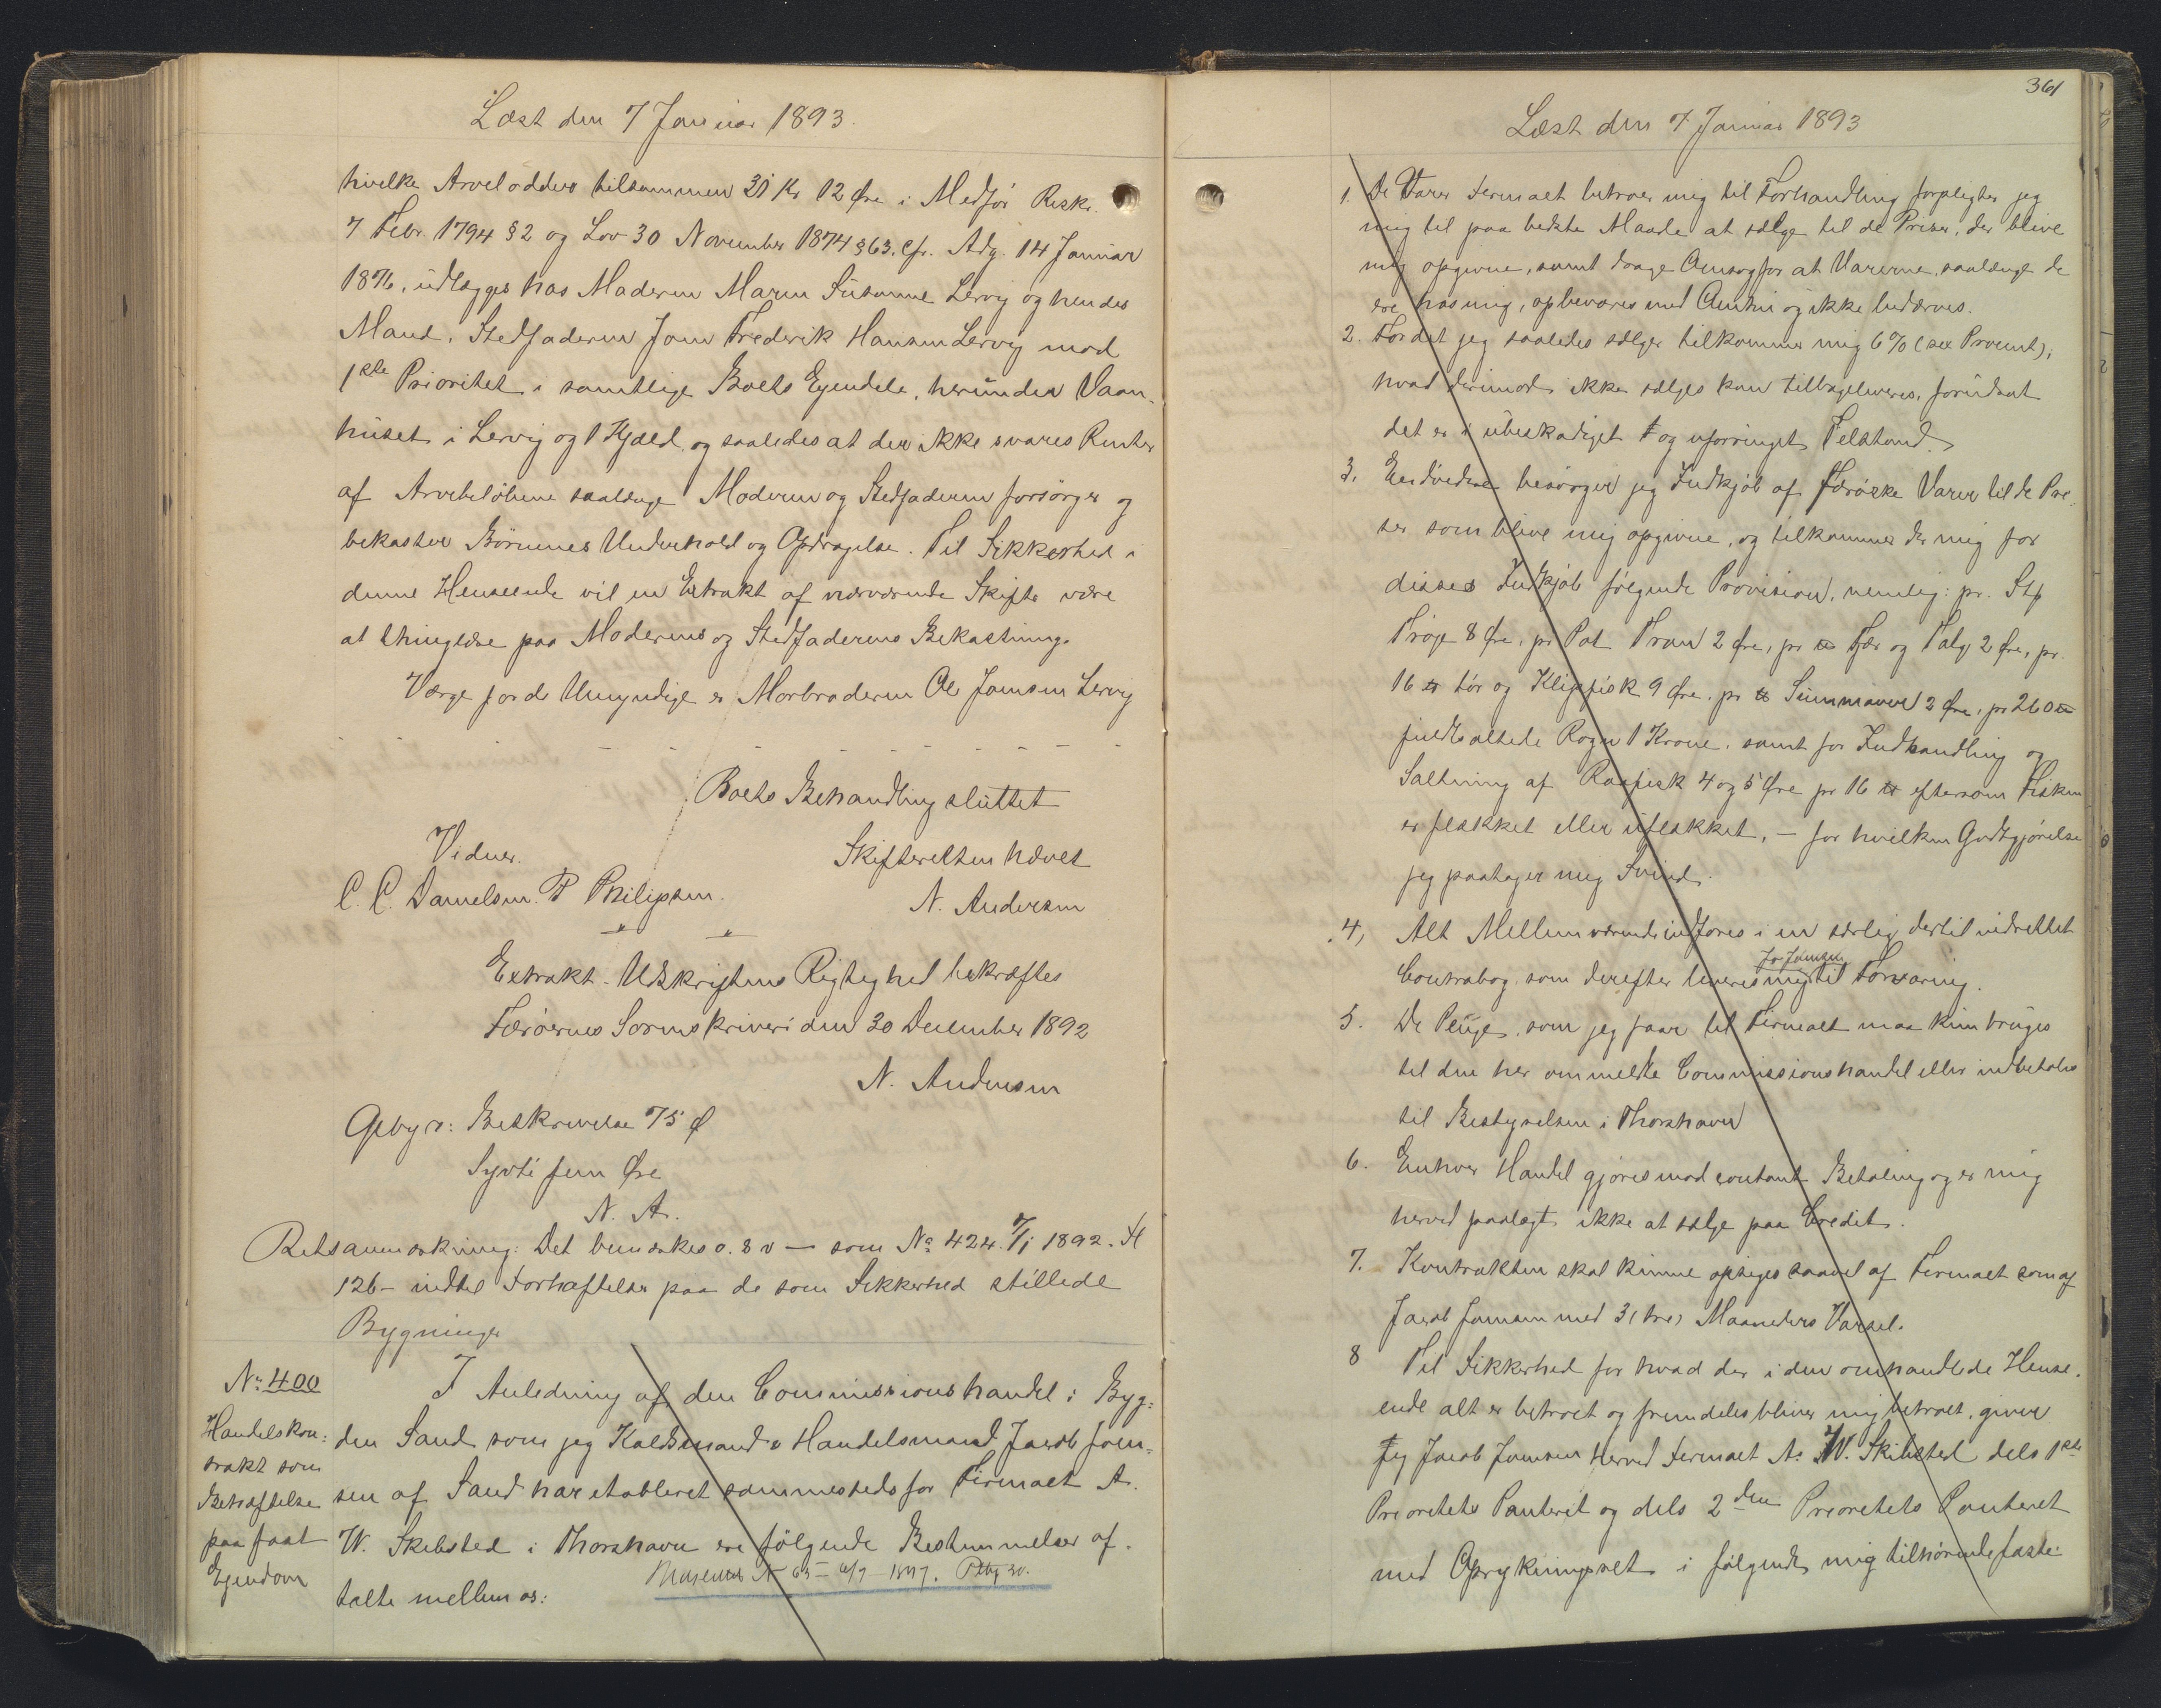 Læst den 7 Januar 1893.
hvilke Arvelodder tilsammen 31 Kr 12 Øre i Medfør Reskr.
7 Febr. 1794 § 2 og Lov 30 November 1874 § 63. cfr. Adg. 14 Januar
1876, udlægges hos Moderen Maren Susanne Lervig og hendes
Mand, Stedfaderen Joen Frederik Hansen Lervig mod
1ste Prioritet i samtlige Boets Ejendele, herunder Vaan-
huset i Lervig og 1 Hjald, og saaledes at der ikke svares Renter
af Arvebeløbene saalænge Moderen og Stedfaderen forsørger og
bekoster Børnenes Underhold og Opdragelse. Til Sikkerhed i
denne Henseende vil en Extrakt af nærværende Skifte være
at thinglæse paa Moderens og Stedfaderens Bekostning.
Værge for de Umyndige er Morbroderen Ole Joensen Lervig
Boets Behandling sluttet
Vidner. Skifteretten hævet
C. C. Danielsen. P Philipsen. N. Andersen
Extrakt-Udskriftens Rigtighed bekræftes
Færøernes Sorenskriveri den 30 December 1892
N. Andersen
Gebyr: Beskrivelse 75 Ø
Syvti fem Øre
N. A.
Retsanmærkning: Det bemærkes o. s v — som No 424. 7/1 1892. H
126 - indtil Forhæftelse paa de som Sikkerhed stillede
Bygninger
No 400
Handelskon:
trakt som
Behæftelse
paa fast
Ejendom
I Anledning af den Commissionshandel i Byg:
den Sand som jeg Handelsmand Jacob Joen=
sen af Sand har etableret sammesteds for Firmaet A.
W. Skibsted i Thorshavn ere følgende Bestemmelser af-
talte mellem os:
361
Læst den 7 Januar 1893
1. De Varer Firmaet betroer mig til Forhandling forpligter jeg
mig til paa bedste Maade at sælge til de Priser, der blive
mig opgivne, samt drage Omsorg for at Varerne, saalænge de
ere hos mig, opbevares med Omhu og ikke bedærves.
2. For det jeg saaledes sælger tilkommer mig 6 % (sex Procent),
hvad derimod ikke sælges kan tilbageleveres, forudsat
det er i ubeskadiget og uforringet Tilstand.
3. Endvidere besørger jeg Indkjøb af færøske Varer til de Pri-
ser som blive mig opgivne, og tilkommer der mig for
disses Indkjøb følgende Provision, nemlig: pr. Stk
Trøje 8 Øre, pr Pot Tran 2 Øre, pr ℔ Fjer og Talg 2 Øre, pr.
16 ℔ tør og Klipfisk 9 Øre, pr ℔ Summaver 2 Øre, pr 260 ℔
fuldsaltede Rogn 1 Krone, samt for Indhandling og
Saltning af Raafisk 4 og 5 Øre pr 16 ℔ eftersom Fisken
er flækket eller uflækket, — for hvilken Godtgjørelse
jeg paatager mig Svind.
4, Alt Mellemværende indføres i en særlig dertil indrettet
Jac Joensen
Contrabog som derefter leveres mig til Forvaring.
5. De Penge, som jeg faar til Firmaet maa kun bruges
til den her ommeldte Commissionshandel eller indbetales
til Bestyrelsen i Thorshavn
6. Enhver Handel gjøres mod contant Betaling og er mig
herved paalagt ikke at sælge paa Credit.
7. Kontrakten skal kunne opsiges saavel af Firmaet som af
Jacob Joensen med 3 (tre) Maaneders Varsel.
8 Til Sikkerhed for hvad der i den omhandlede Hense-
ende alt er betroet og fremdeles bliver mig betroet, giver
jeg Jacob Joensen herved Firmaet A. W. Skibsted dels 1ste
Prioritets Panteret og dels 2den Prioritets Panteret
med Oprykningsret i følgende mig tilhørende faste